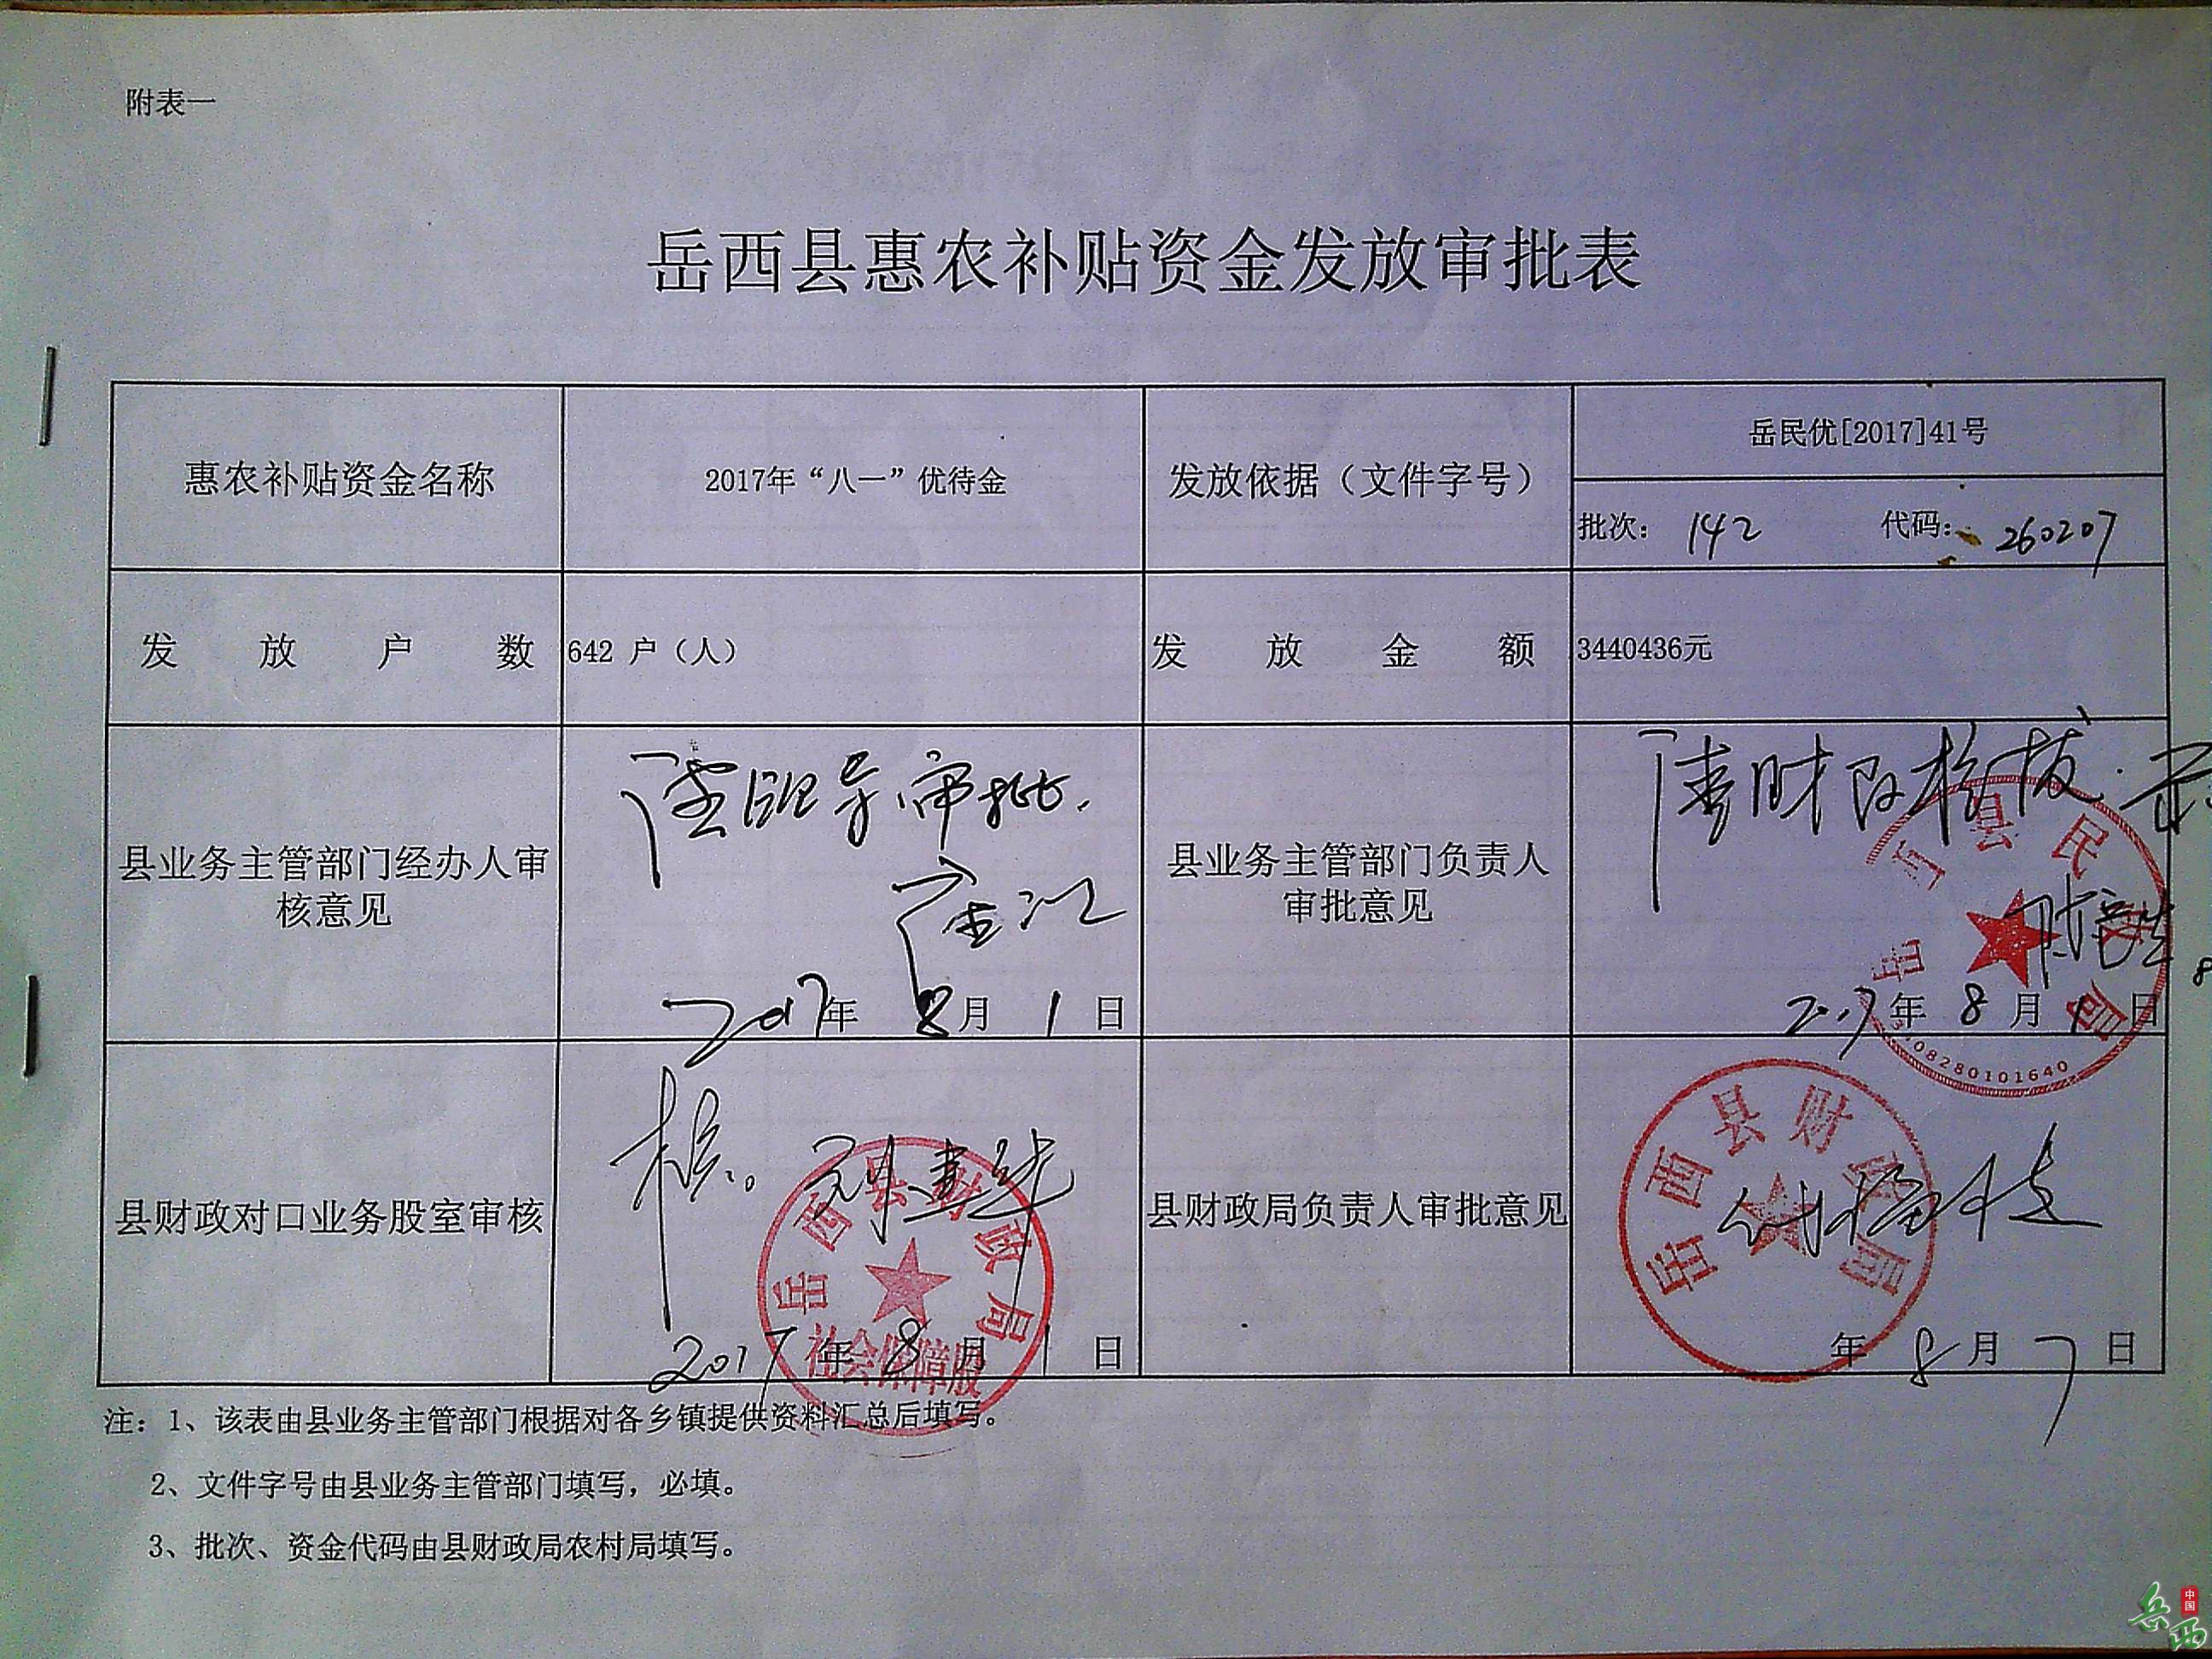 附表一
岳西县惠农补贴资金发放审批表
惠农补贴资金名称
2017年“八一”优待金
发放依据（文件字号）
岳民优[2017]41号
批次： 142 代码： 260207
发放户数
642 户（人）
发放金额
3440436元
县业务主管部门经办人审
核意见
领导审批.
2017年 8月 1日
县业务主管部门负责人
审批意见
请财政核拨.
县民
岳
局
2017年 8月 1日
08280101640
县财政对口业务股室审核
核。
岳西县财政局
社会保障股
2017年 8月 1日
县财政局负责人审批意见
岳西县财政局
年 8月 7日
注：1、该表由县业务主管部门根据对各乡镇提供资料汇总后填写。
2、文件字号由县业务主管部门填写，必填。
3、批次、资金代码由县财政局农村局填写。
中国
岳西